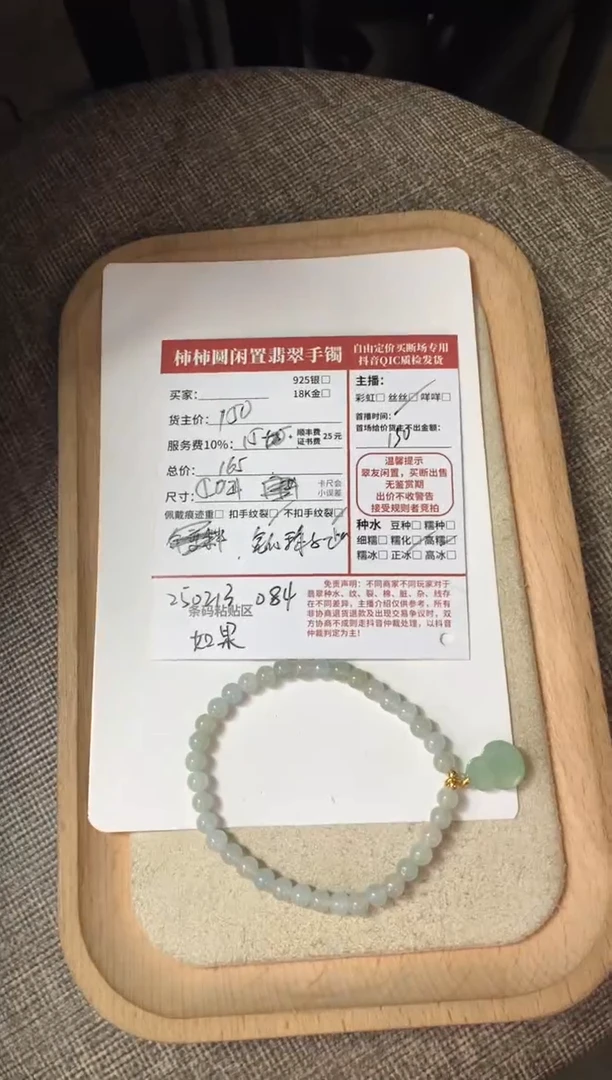 柿柿圆闲置翡翠手镯
自由定价买断场专用
抖音QIC质检发货
925银□
18K金□
买家:
货主价: 150
服务费10%: 15 + 顺丰费 证书费 25元
总价: 165
尺寸:
卡尺会
小误差
佩戴痕迹重□ 扣手纹裂□ 不扣手纹裂□
主播:
彩虹□ 丝丝□ 咩咩□
首播时间:
首场给价货主不出金额:
150
温馨提示
翠友闲置,买断出售
无鉴赏期
出价不收警告
接受规则者竞拍
种水 豆种□ 糯种□
细糯□ 糯化□ 高糯□
糯冰□ 正冰□ 高冰□
250213 084
条码粘贴区
如果
免责声明:不同商家不同玩家对于
翡翠种水、纹、裂、棉、脏、杂、线存
在不同差异,主播介绍仅供参考,所有
非协商退货退款及出现交易争议时,双
方协商不成则走抖音仲裁处理,以抖音
仲裁判定为主!